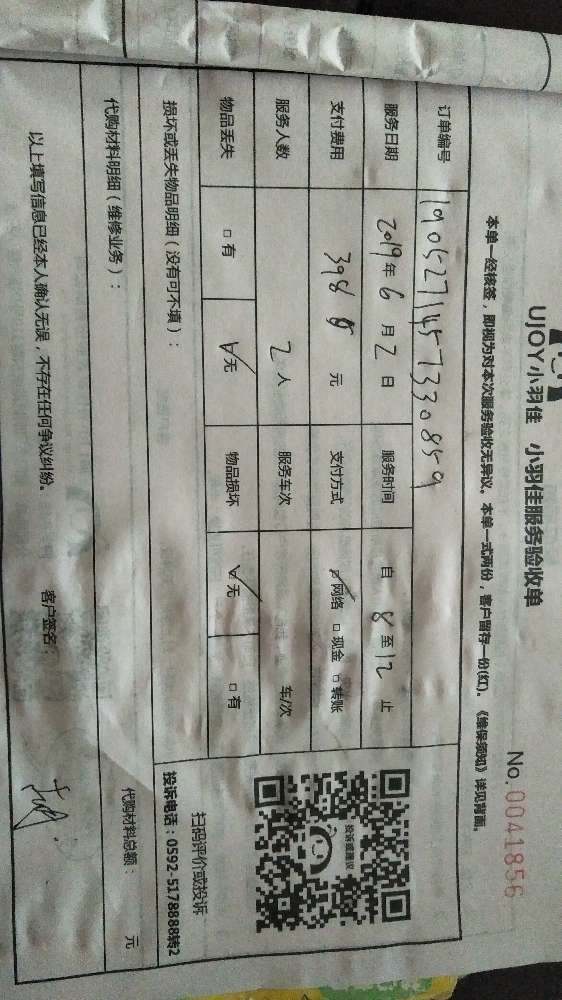 UJOY小羽佳 小羽佳服务验收单
No. 0041856
本单一经核签，即视为对本次服务验收无异议。本单一式两份，客户留存一份(红)。《维保须知》详见背面。
订单编号 1905271457330859
服务日期 2019年6月2日 服务时间 自 8 至 12 止
支付费用 398 元 支付方式 ☑网络 □现金 □转账
服务人数 2人 服务车次 车/次
物品丢失 □有 ☑无 物品损坏 ☑无 □有
损坏或丢失物品明细（没有可不填）：
代购材料明细（维修业务）：
代购材料总额： 元
投诉或建议
扫码评价或投诉
投诉电话：0592-5178888转2
以上填写信息已经本人确认无误，不存在任何争议纠纷。 客户签名：